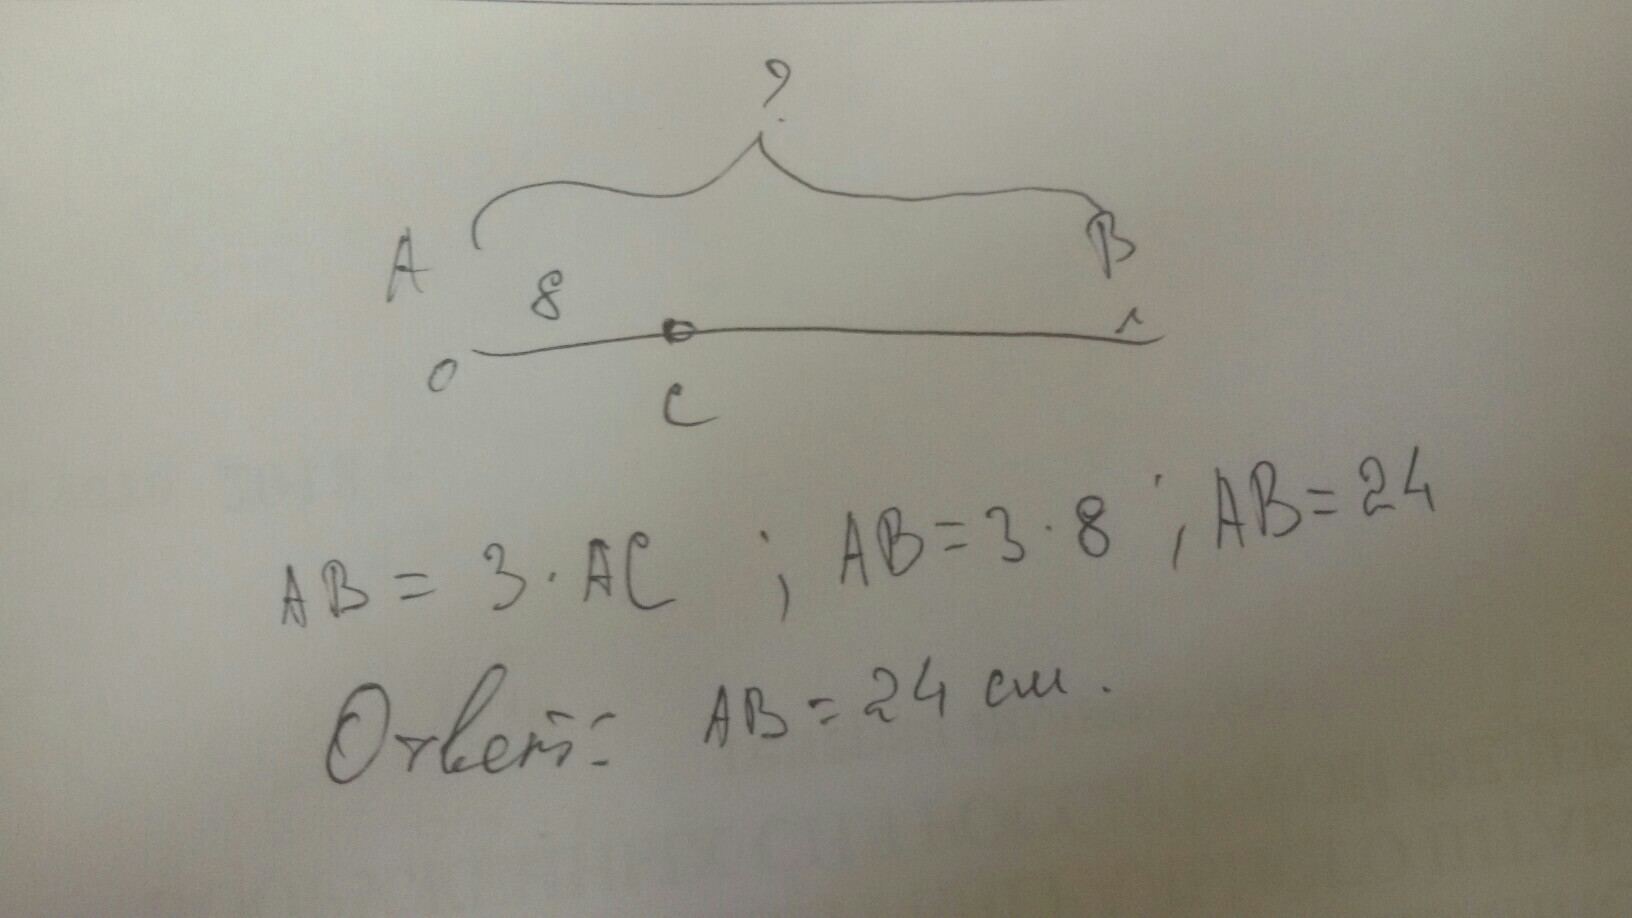 ?
A B
8
0 1
C
AB = 3 · AC ; AB = 3 · 8 ; AB = 24
Ответ: AB = 24 см.